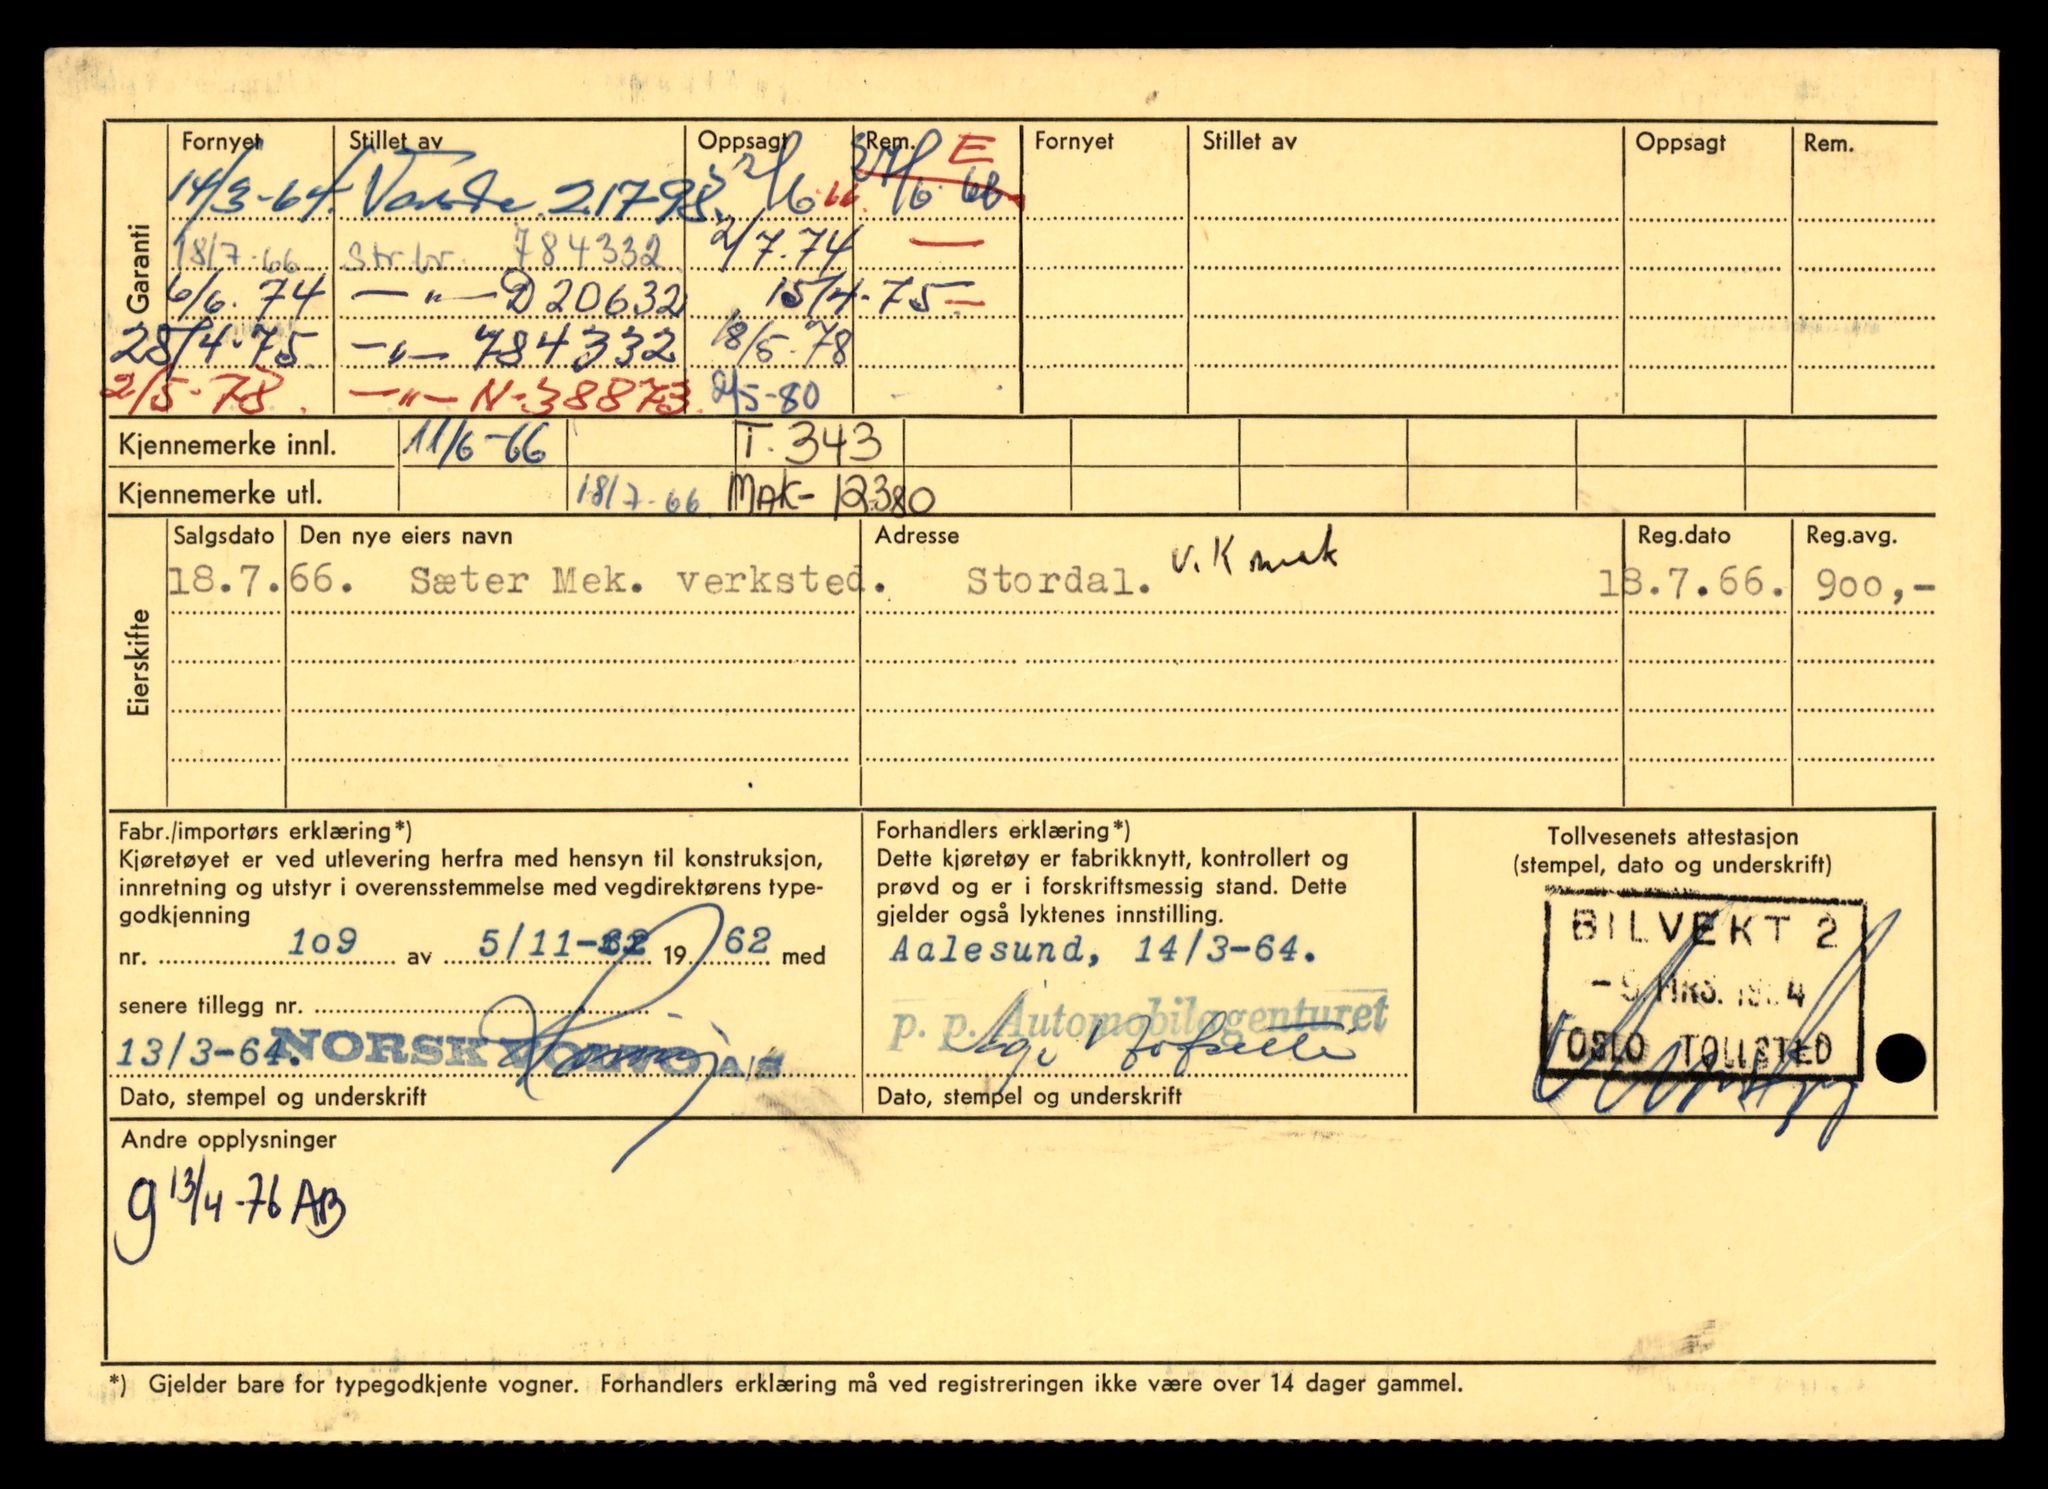 Garanti
Fornyet Stillet av Oppsagt Rem. Fornyet Stillet av Oppsagt Rem.
14/3-64. 21798. 2/6-66 E
18/7-66 Str.br. 784332 2/7.74 —
6/6.74 —"— D20632 15/4-75 —
28/4-75. —"— 784332 18/5-78
2/5-78. —"— N-38873. 2/5-80
Kjennemerke innl. 11/6-66 T. 343
Kjennemerke utl. 18/7-66 MAK- 12380
Eierskifte
Salgsdato Den nye eiers navn Adresse Reg.dato Reg.avg.
18.7.66. Sæter Mek. verksted. Stordal. 18.7.66. 900,-
Fabr./importørs erklæring*)
Kjøretøyet er ved utlevering herfra med hensyn til konstruksjon,
innretning og utstyr i overensstemmelse med vegdirektørens type-
godkjenning
nr. 109 av 5/11-62 19 62 med
senere tillegg nr.
13/3-64. NORSK VOLVO A/S
Dato, stempel og underskrift
Forhandlers erklæring*)
Dette kjøretøy er fabrikknytt, kontrollert og
prøvd og er i forskriftsmessig stand. Dette
gjelder også lyktenes innstilling.
Aalesund, 14/3-64.
p. p. Automobilagenturet
Dato, stempel og underskrift
Tollvesenets attestasjon
(stempel, dato og underskrift)
BILVEKT 2
-9. MRS. 1964
OSLO TOLLSTED
Andre opplysninger
g 13/4-76 AB
*) Gjelder bare for typegodkjente vogner. Forhandlers erklæring må ved registreringen ikke være over 14 dager gammel.